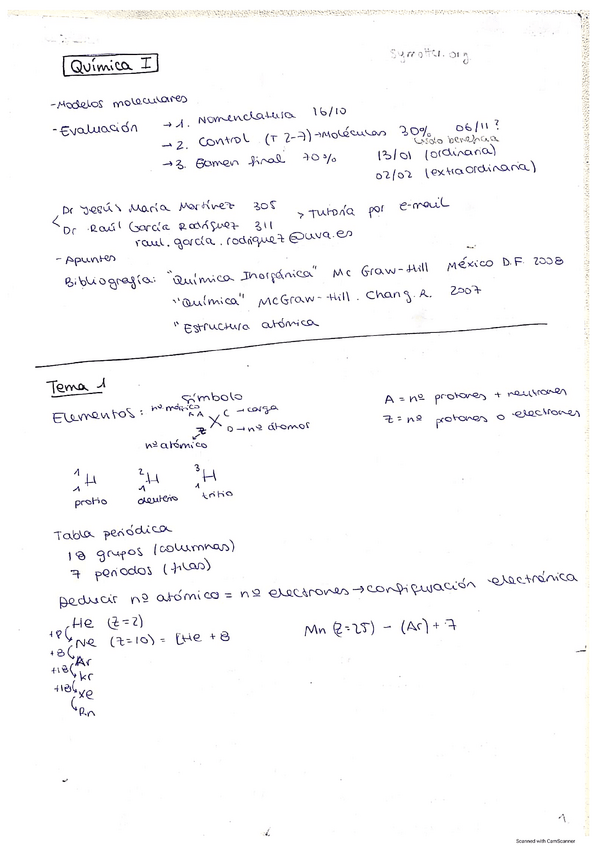 Química I
Symotter.org
-Modelos moleculares
-Evaluación → 1. Nomenclatura 16/10
→ 2. Control (T 2-7) → Moléculas 30% 06/11?
Solo beneficia
→ 3. Examen final 70% 13/01 (ordinaria)
02/02 (extraordinaria)
Dr Jesús María Martínez 305
Dr Raúl García Rodríguez 311 > Tutoría por e-mail
raul.garcia.rodriguez@uva.es
- Apuntes
Bibliografía: "Química Inorgánica" Mc Graw-Hill México D.F. 2008
"Química" McGraw-Hill. Chang. R. 2007
"Estructura atómica
Tema 1
Símbolo
Elementos: nº másico A X C → carga
Z D → nº átomos
nº atómico
A = nº protones + neutrones
Z = nº protones o electrones
1 H 2 H 3 H
1 1 1
protio deuterio tritio
Tabla periódica
18 grupos (columnas)
7 periodos (filas)
Deducir nº atómico = nº electrones → configuración electrónica
He (Z=2)
+8 Ne (Z=10) = [He + 8
Mn (Z=25) - (Ar) + 7
+8 Ar
+18 Kr
+18 Xe
Rn
1
Scanned with CamScanner